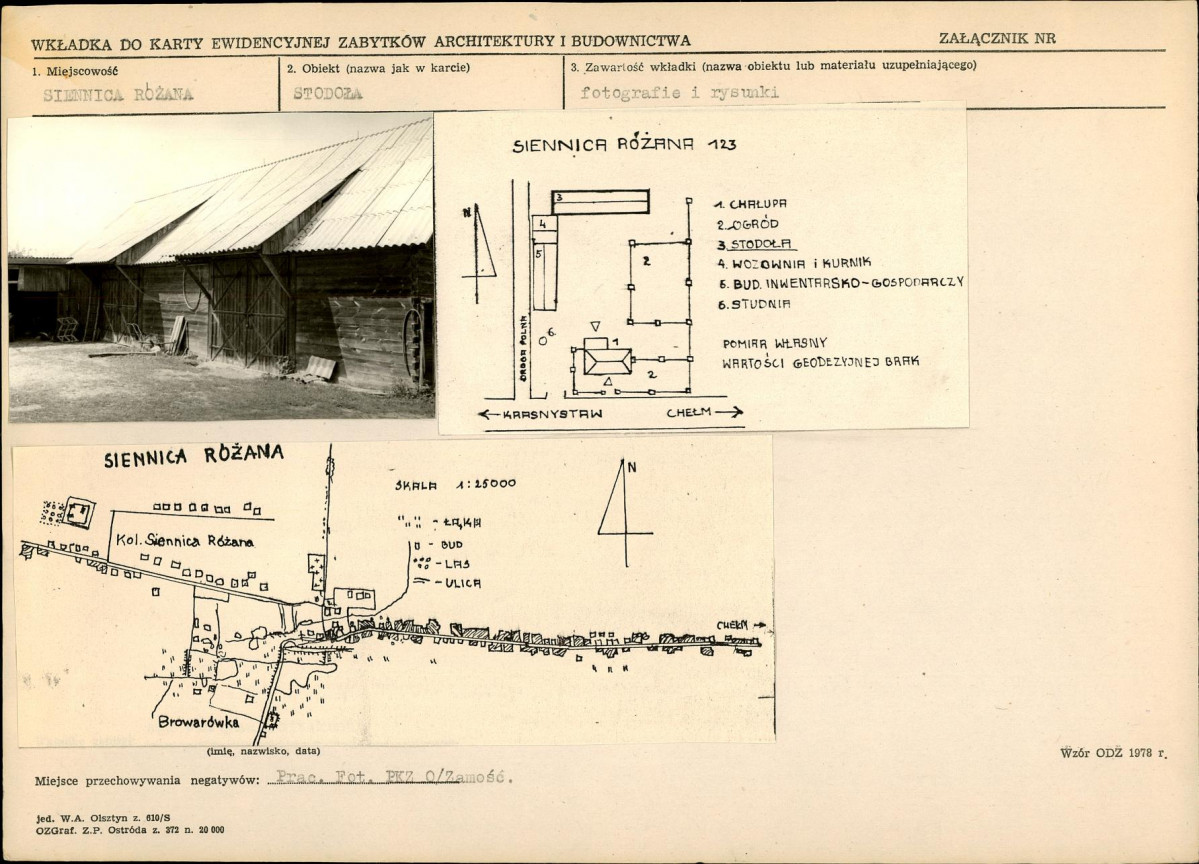 WKŁADKA DO KARTY EWIDENCYJNEJ ZABYTKÓW ARCHITEKTURY I BUDOWNICTWA
ZAŁĄCZNIK NR
1. Miejscowość
SIENNICA RÓŻANA
2. Obiekt (nazwa jak w karcie)
STODOŁA
3. Zawartość wkładki (nazwa obiektu lub materiału uzupełniającego)
fotografie i rysunki
SIENNICA RÓŻANA 123
N
3
4
5
6.
2
1
2
DROGA POLNA
1. CHAŁUPA
2. OGRÓD
3. STODOŁA
4. WOZOWNIA i KURNIK
5. BUD. INWENTARSKO-GOSPODARCZY
6. STUDNIA
POMIAR WŁASNY
WARTOŚCI GEODEZYJNEJ BRAK
KRASNYSTAW
CHEŁM
SIENNICA RÓŻANA
SKALA 1:25000
N
- ŁĄKA
- BUD
- LAS
- ULICA
Kol. Siennica Różana
CHEŁM
Browarówka
(imię, nazwisko, data)
Wzór ODZ 1978 r.
Miejsce przechowywania negatywów: Prac. Fot. PKZ O/Zamość.
jed. W.A. Olsztyn z. 610/S
OZGraf. Z.P. Ostróda z. 372 n. 20 000